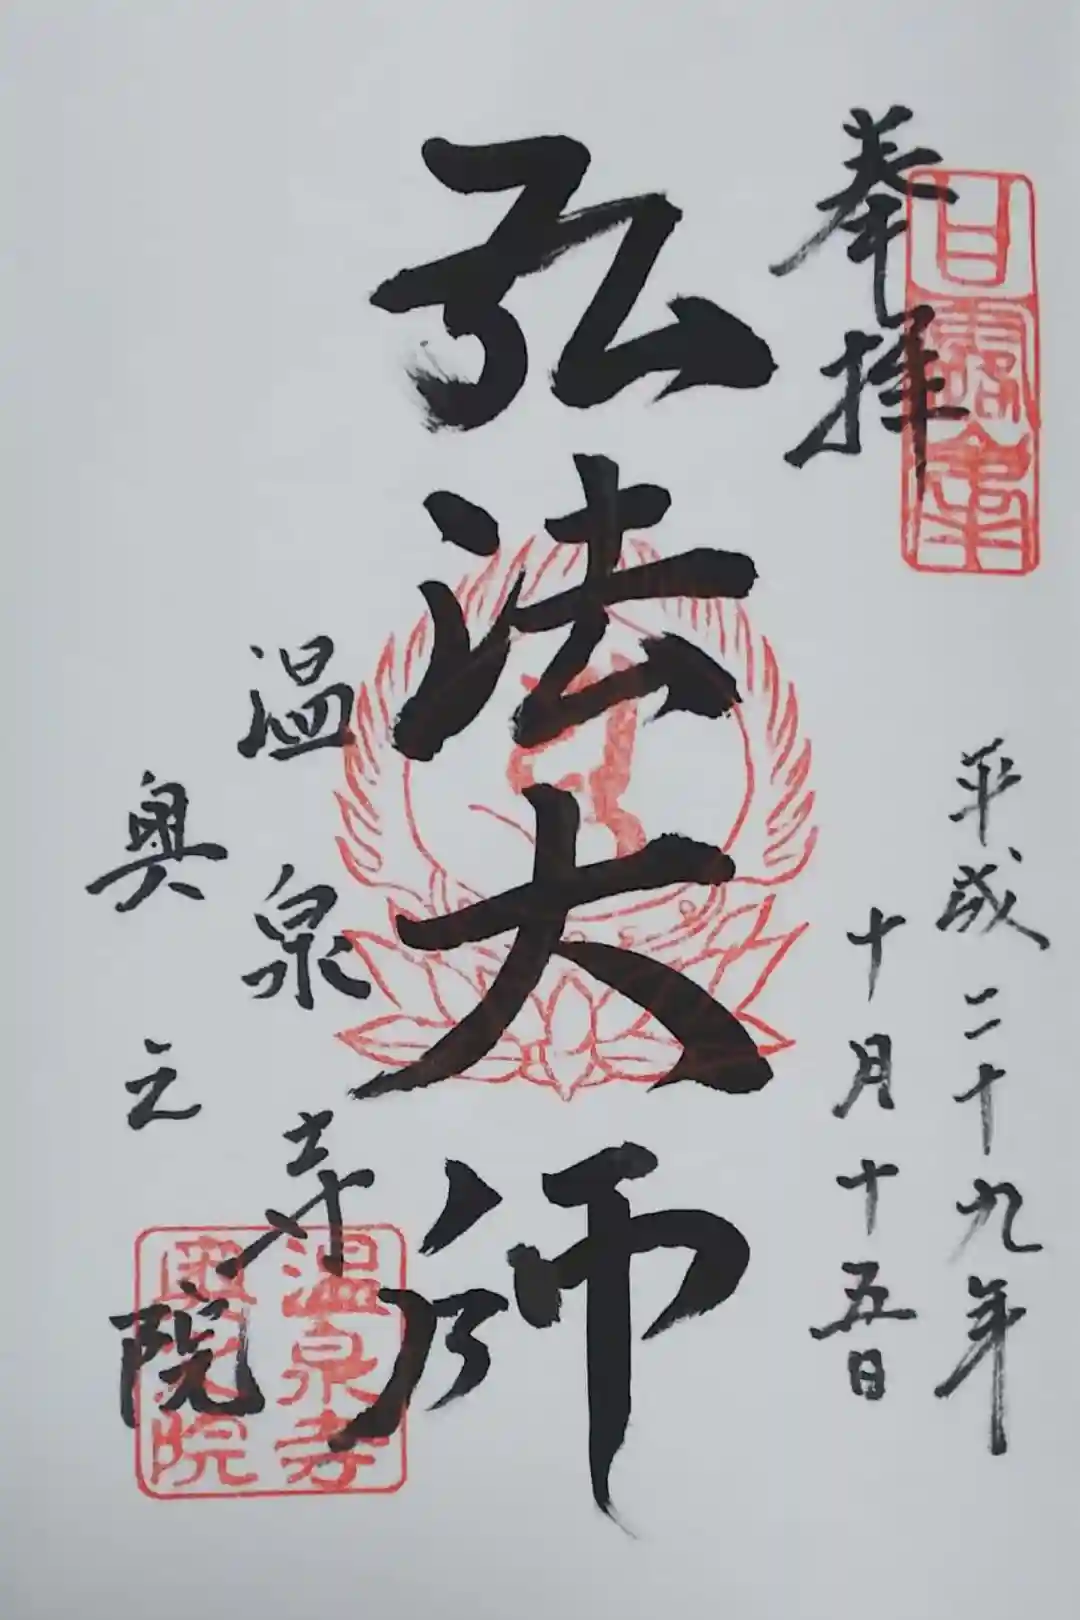 奉拝
平成二十九年
十月十五日
弘法大師
温泉寺
奥之院
温泉寺
奥之院